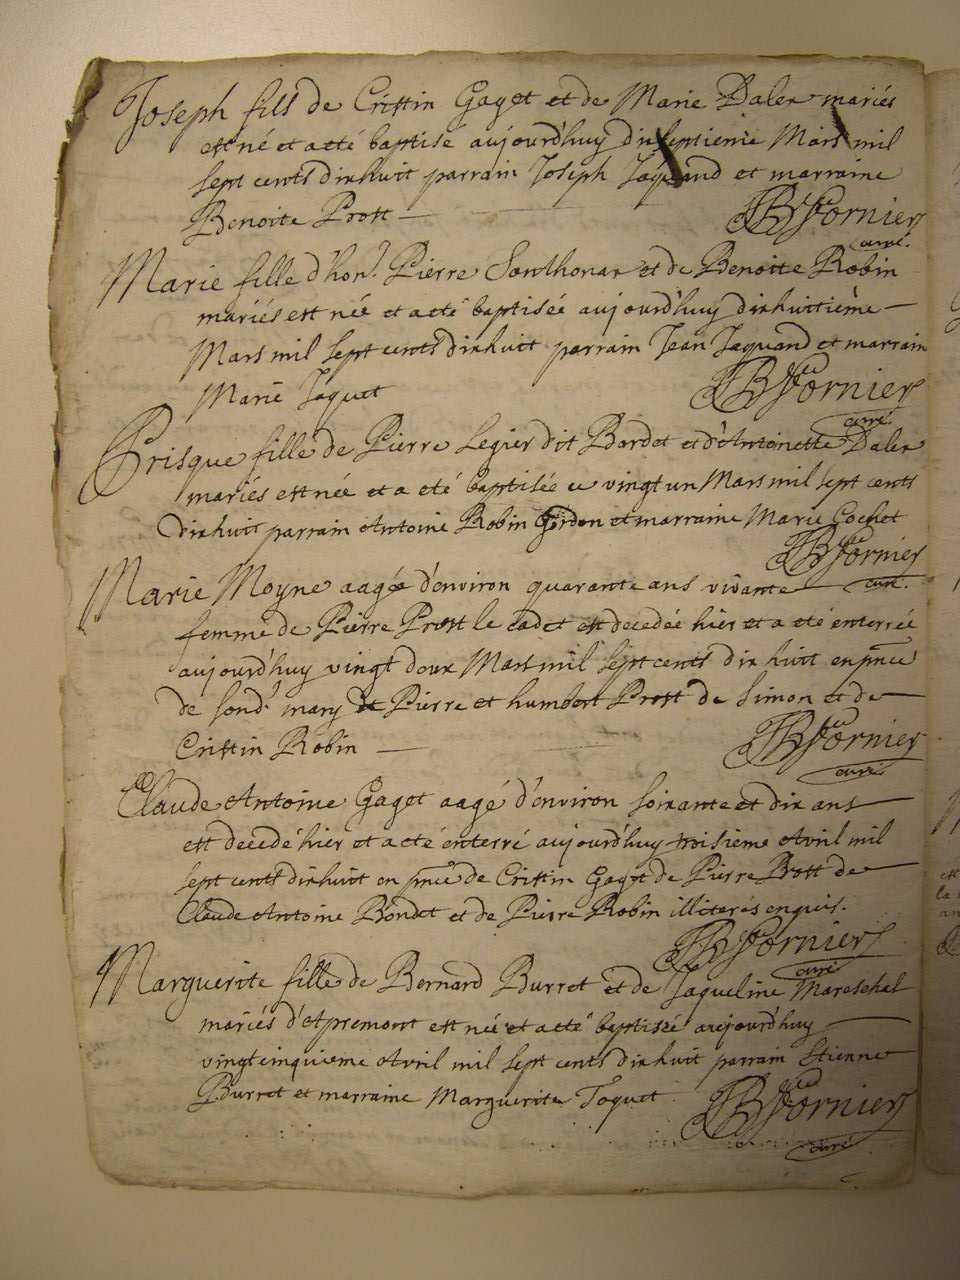 Joseph fils de Cristin Gaget et de Marie Daler mariés
est né et a eté baptisé aujourd'huy dixseptieme Mars mil
sept cents dixhuit parrain Joseph Jaquand et marraine
Benoite Prost JB Fornier
curé.
Marie fille d'hon. Pierre Sonthonax et de Benoitte Robin
mariés est née et a eté baptisée aujourd'huy dixhuitième
Mars mil sept cents dixhuit parrain Jean Jaquand et marrain
Marie Jaquet JB Fornier
curé
Prisque fille de Pierre Legier dit Bordet et d'Antoinette Daler
mariés est née et a eté baptisée ce vingt un Mars mil sept cents
dixhuit parrain Antoine Robin et marraine Marie Cochet
JB Fornier
curé.
Marie Moyne aagée d'environ quarante ans vivante
femme de Pierre Prost le cadet est decedée hier et a eté enterrée
aujourd'huy vingt deux Mars mil sept cents dixhuit en pnce
de sond. mary de Pierre et humbert Prost de Simon et de
Cristin Robin JB Fornier
curé
Claude Antoine Gaget aagé d'environ soixante et dix ans
est decedé hier et a eté enterré aujourd'huy troisieme Avril mil
sept cents dixhuit en pnce de Cristin Gaget de Pierre Prost de
Claude Antoine Bondet et de Pierre Robin illiterés enquis.
JB Fornier
curé
Marguerite fille de Bernard Burret et de Jaqueline Mareschal
mariés d'Etpremont est née et a eté baptisée aujourd'huy
vingtcinquieme Avril mil sept cents dixhuit parrain Etienne
Burret et marraine Marguerite Jaquet JB Fornier
curé